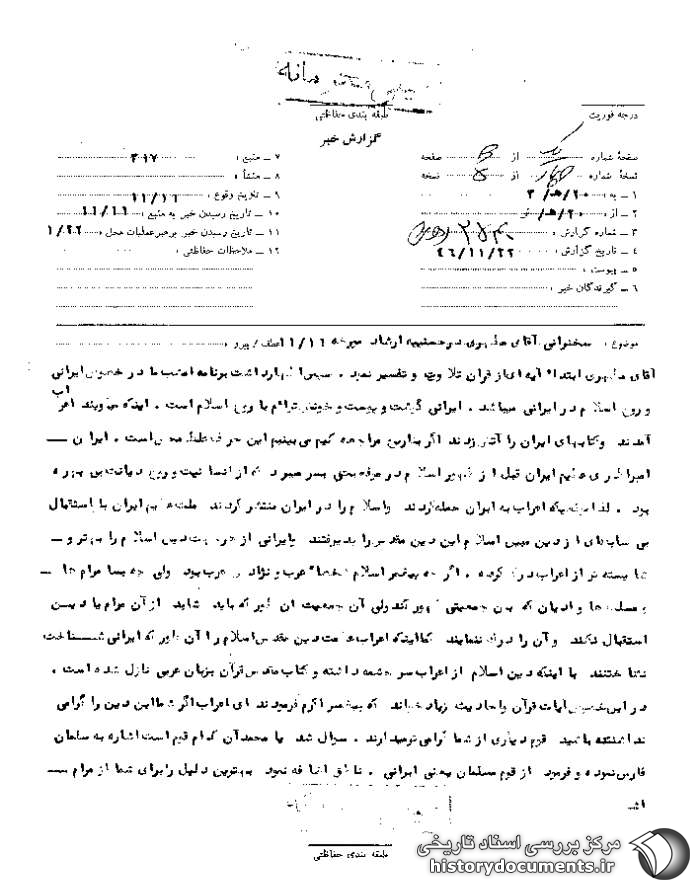 درجه فوریت
طبقه بندی حفاظتی
گزارش خبر
صفحهٔ شماره از صفحه
نسخهٔ شماره از نسخه
۱ ـ به : ۲۰ / هـ / ۳
۲ ـ از : ۲۰ / هـ /
۳ ـ شماره گزارش :
۴ ـ تاریخ گزارش : ۴۶/۱۱/۲۲
۵ ـ پیوست :
۶ ـ گیرندگان خبر :
۷ ـ منبع :
۸ ـ منشأ :
۹ ـ تاریخ وقوع : ۱۱/۱۶
۱۰ ـ تاریخ رسیدن خبر به منبع : ۱۱/۱۶
۱۱ ـ تاریخ رسیدن خبر به رهبر عملیات محل :
۱۲ ـ ملاحظات حفاظتی :
موضوع : سخنرانی آقای مطهری در حسینیه ارشاد مورخه ۱۱/۱۶ عطف / پیرو
آقای مطهری ابتدا آیه ای از قرآن تلاوت و تفسیر نمود . سپس اظهار داشت برنامه امشب ما در خصوص ایرانی
و روح اسلام در ایرانی میباشد . ایرانی گوشت و پوست و خونش توأم با روح اسلام است . اینکه میگویند اعراب
آمدند و کتابهای ایران را آتش زدند اگر بتاریخ مراجعه کنیم می بینیم این حرف غلط محض است . ایران
امپراطوری عظیم ایران قبل از ظهور اسلام در بسر میبرد که از انسانیت و روح دیانت بی بهره
بود . لذا موقعیکه اعراب به ایران حمله کردند و اسلام را در ایران منتشر کردند ملت عظیم ایران با استقبال
بی سابقه ای از دین مبین اسلام این دین مقدس را پذیرفتند و ایرانی از هر حیث دین اسلام را بهتر و
شایسته تر از اعراب درک کرده . اگر چه پیغمبر اسلام شخصاً عرب و نژاد عرب بود ولی چه بسا مرام ها
و مسلک ها و ادیان که بین جمعیتی ظهور کند ولی آن جمعیت آن طور که باید شاید از آن مرام یا دین
استقبال نکند و آن را درک ننمایند کما اینکه اعراب عظمت دین مقدس اسلام را آن طور که ایرانی شناخت
نشناختند با اینکه دین اسلام از اعراب سرچشمه داشته و کتاب مقدس قرآن بزبان عربی نازل شده است .
در این خصوص آیات قرآن و احادیث زیاد خواند که پیغمبر اکرم فرمودند ای اعراب اگر شما این دین را گرامی
نداشته باشید قوم دیگری از شما گرامی تر میدارند . سوال شد یا محمد آن کدام قوم است اشاره به سلمان
فارسی نموده و فرمود از قوم سلمان یعنی ایرانی . ناطق اضافه نمود بهترین دلیل را برای شما از مرام
طبقه بندی حفاظتی
مرکز بررسی اسناد تاریخی
historydocuments.ir